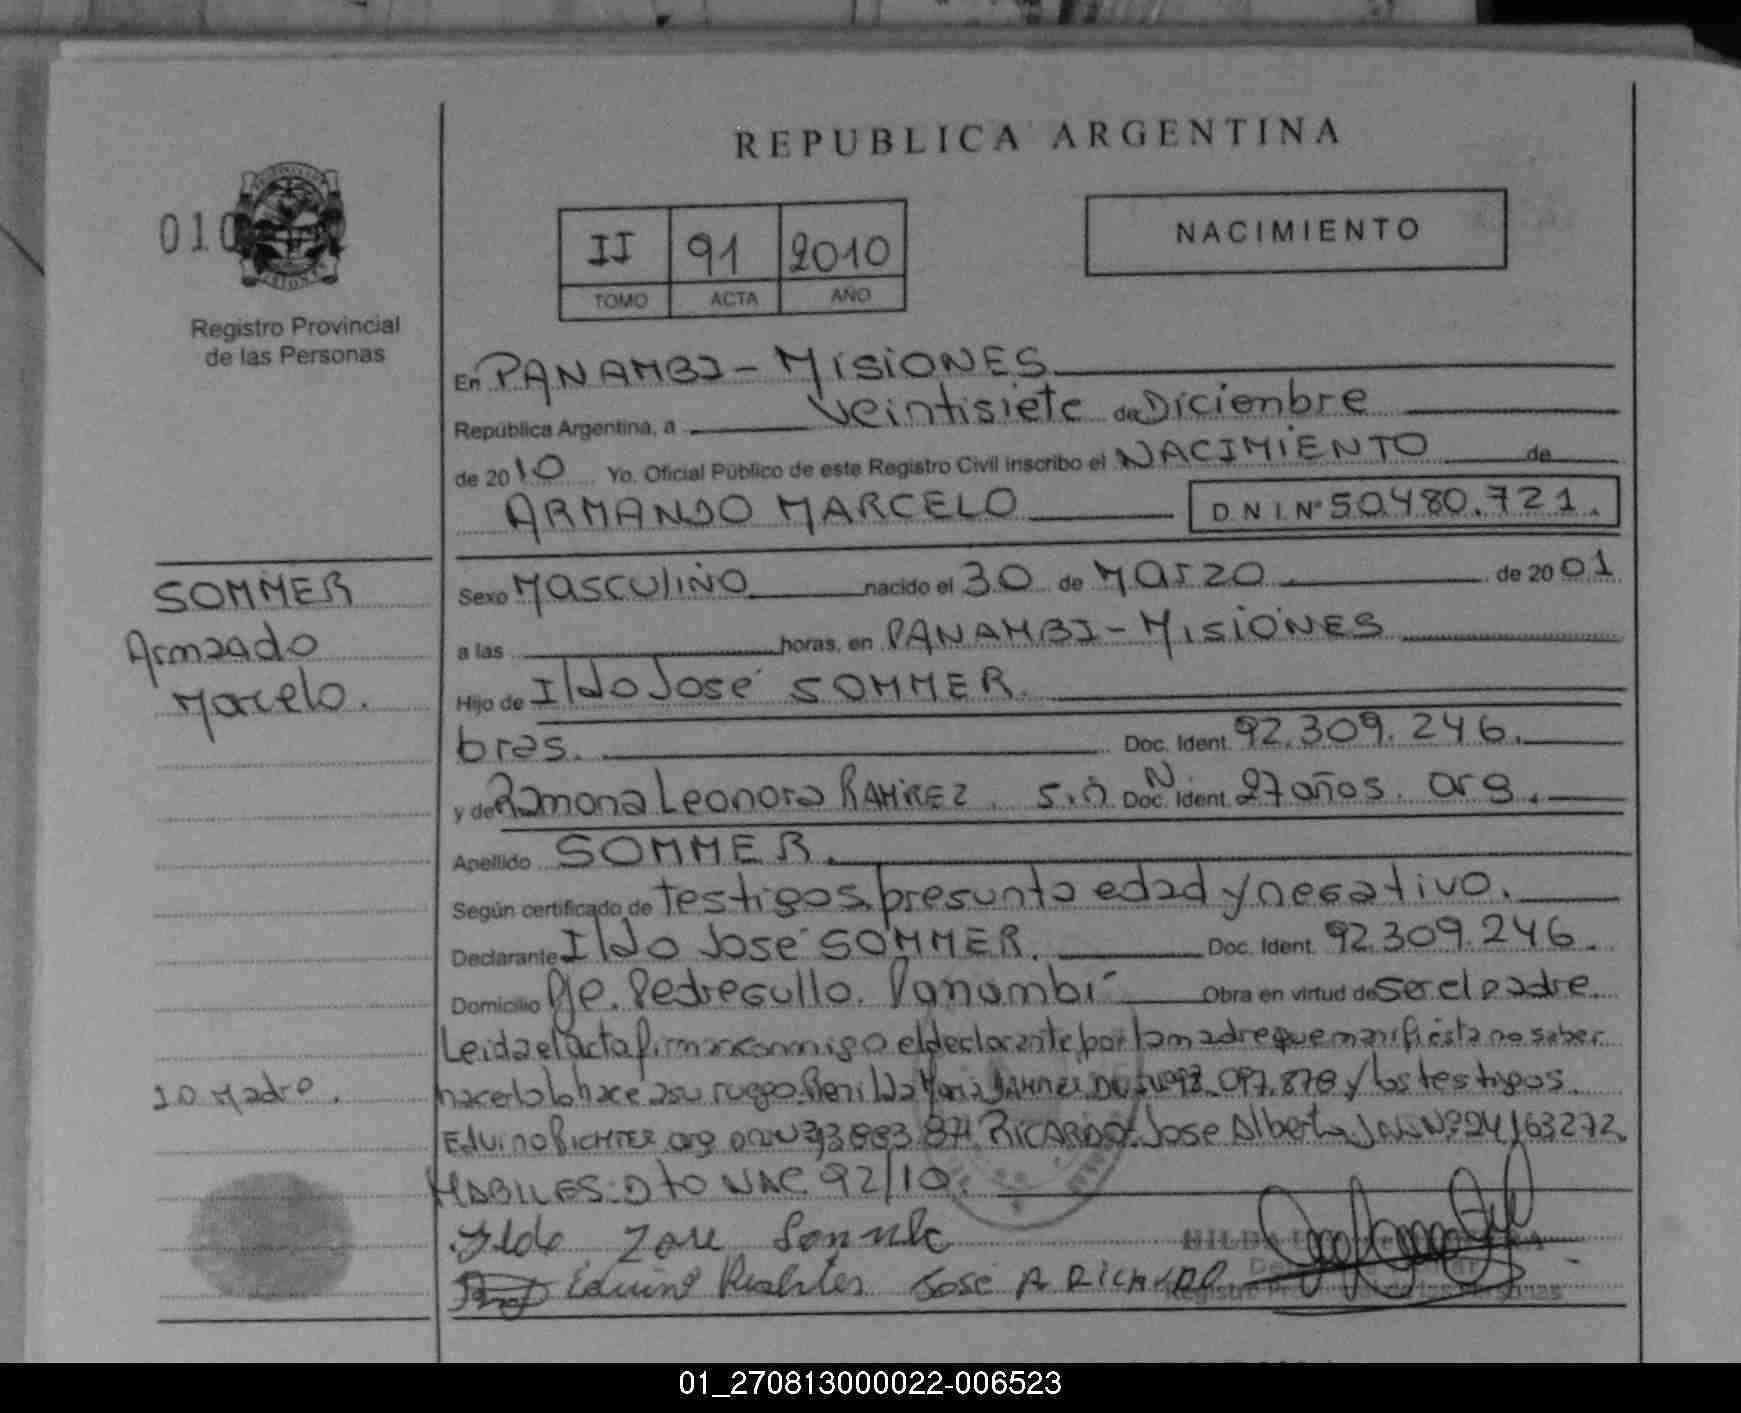 REPUBLICA ARGENTINA
010
II 91 2010
TOMO ACTA AÑO
NACIMIENTO
Registro Provincial
de las Personas
En PANAMBI - MISIONES
República Argentina, a Veintisiete de Diciembre
de 2010 Yo, Oficial Público de este Registro Civil inscribo el NACIMIENTO de
ARMANDO MARCELO DNI Nº 50.480.721.
SOMMER
Armando
Marcelo.
Sexo Masculino nacido el 30 de Marzo de 2001
a las horas, en PANAMBI - MISIONES
Hijo de Ildo José SOMMER.
bras. Doc. Ident. 92.309.246.
y de Ramona Leonora RAMIREZ S.N. Doc. Ident. 27 años. arg.
Apellido SOMMER.
Según certificado de testigos, presunta edad y negativo.
Declarante Ildo José SOMMER. Doc. Ident. 92.309.246.
Domicilio Pje. Pedregullo. Panambí Obra en virtud de ser el padre.
Leida el acta firman conmigo el declarante, por la madre que manifiesta no saber
hacerlo lo hace a su ruego y los testigos
Eduino RICHTER arg José Alberto
HABILES: Dto NAC. 92/10.
I.D. Madre.
Ildo José
Eduino Richter José A Ricardo
Registro Personas
01_270813000022-006523